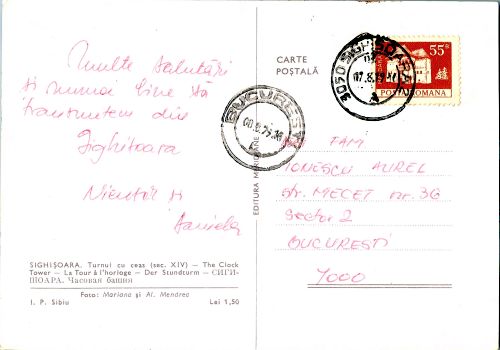 Multe salutări
și numai bine vă
transmitem din
Sighișoara
și
Daniela
SIGHIȘOARA. Turnul cu ceas (sec. XIV) — The Clock
Tower — La Tour à l'horloge — Der Stundturm — СИГИ-
ШОАРА. Часовая башня
Foto: Mariana și Al. Mendrea
I. P. Sibiu
Lei 1,50
EDITURA MERIDIANE
CARTE
POȘTALĂ
3050 SIGHIȘOARA
BUCUREȘTI
55
POSTA ROMANA
FAM
IONESCU AUREL
str. MECET nr. 36
Sector 2
BUCUREȘTI
7000